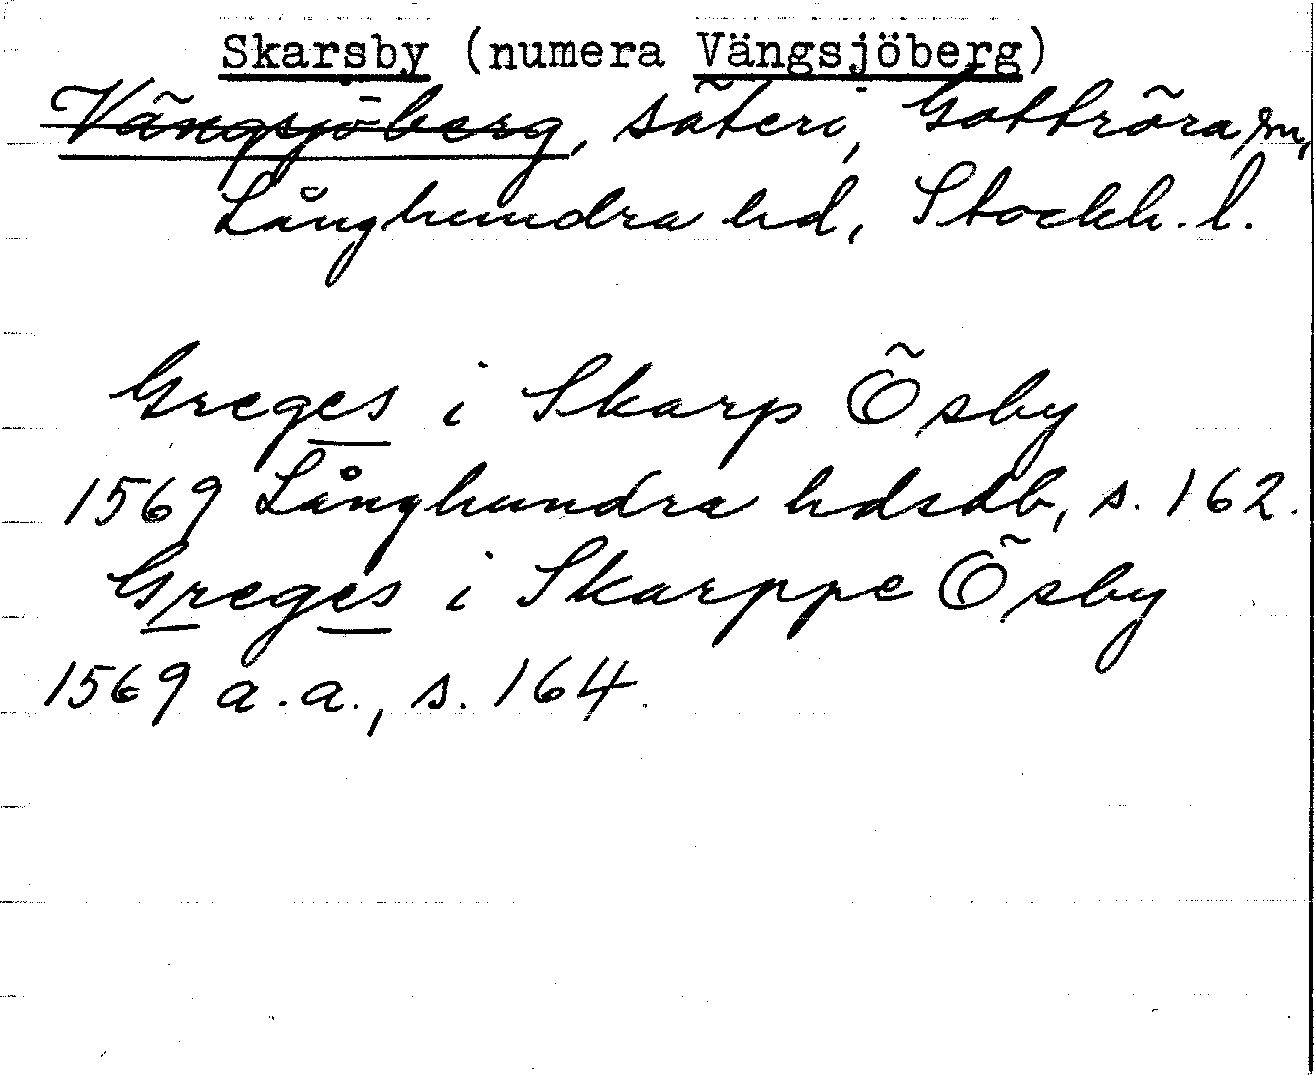 Skarsby (numera Vängsjöberg)
Vängsjöberg, säteri, Gottröra sn,
Långhundra hd, Stockh. l.
Greges i Skarp Ösby
1569 Långhundra hdsdb, s. 162.
Greges i Skarppe Ösby
1569 a.a., s. 164.